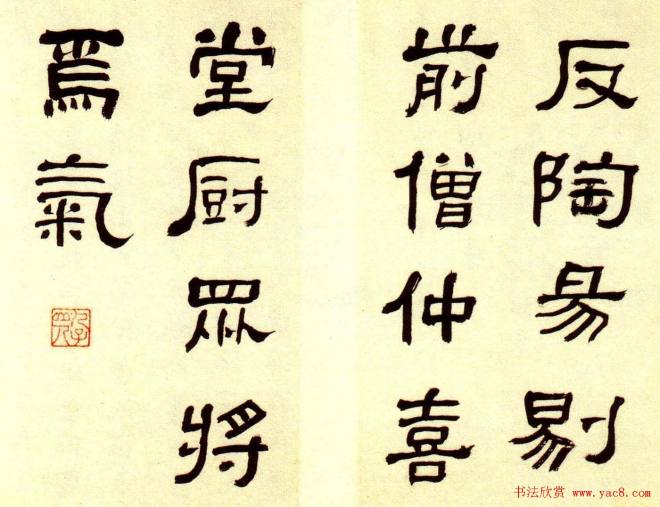 反陶易剔
前僧仲喜
堂厨眾將
焉氣
书法欣赏 www.yac8.com